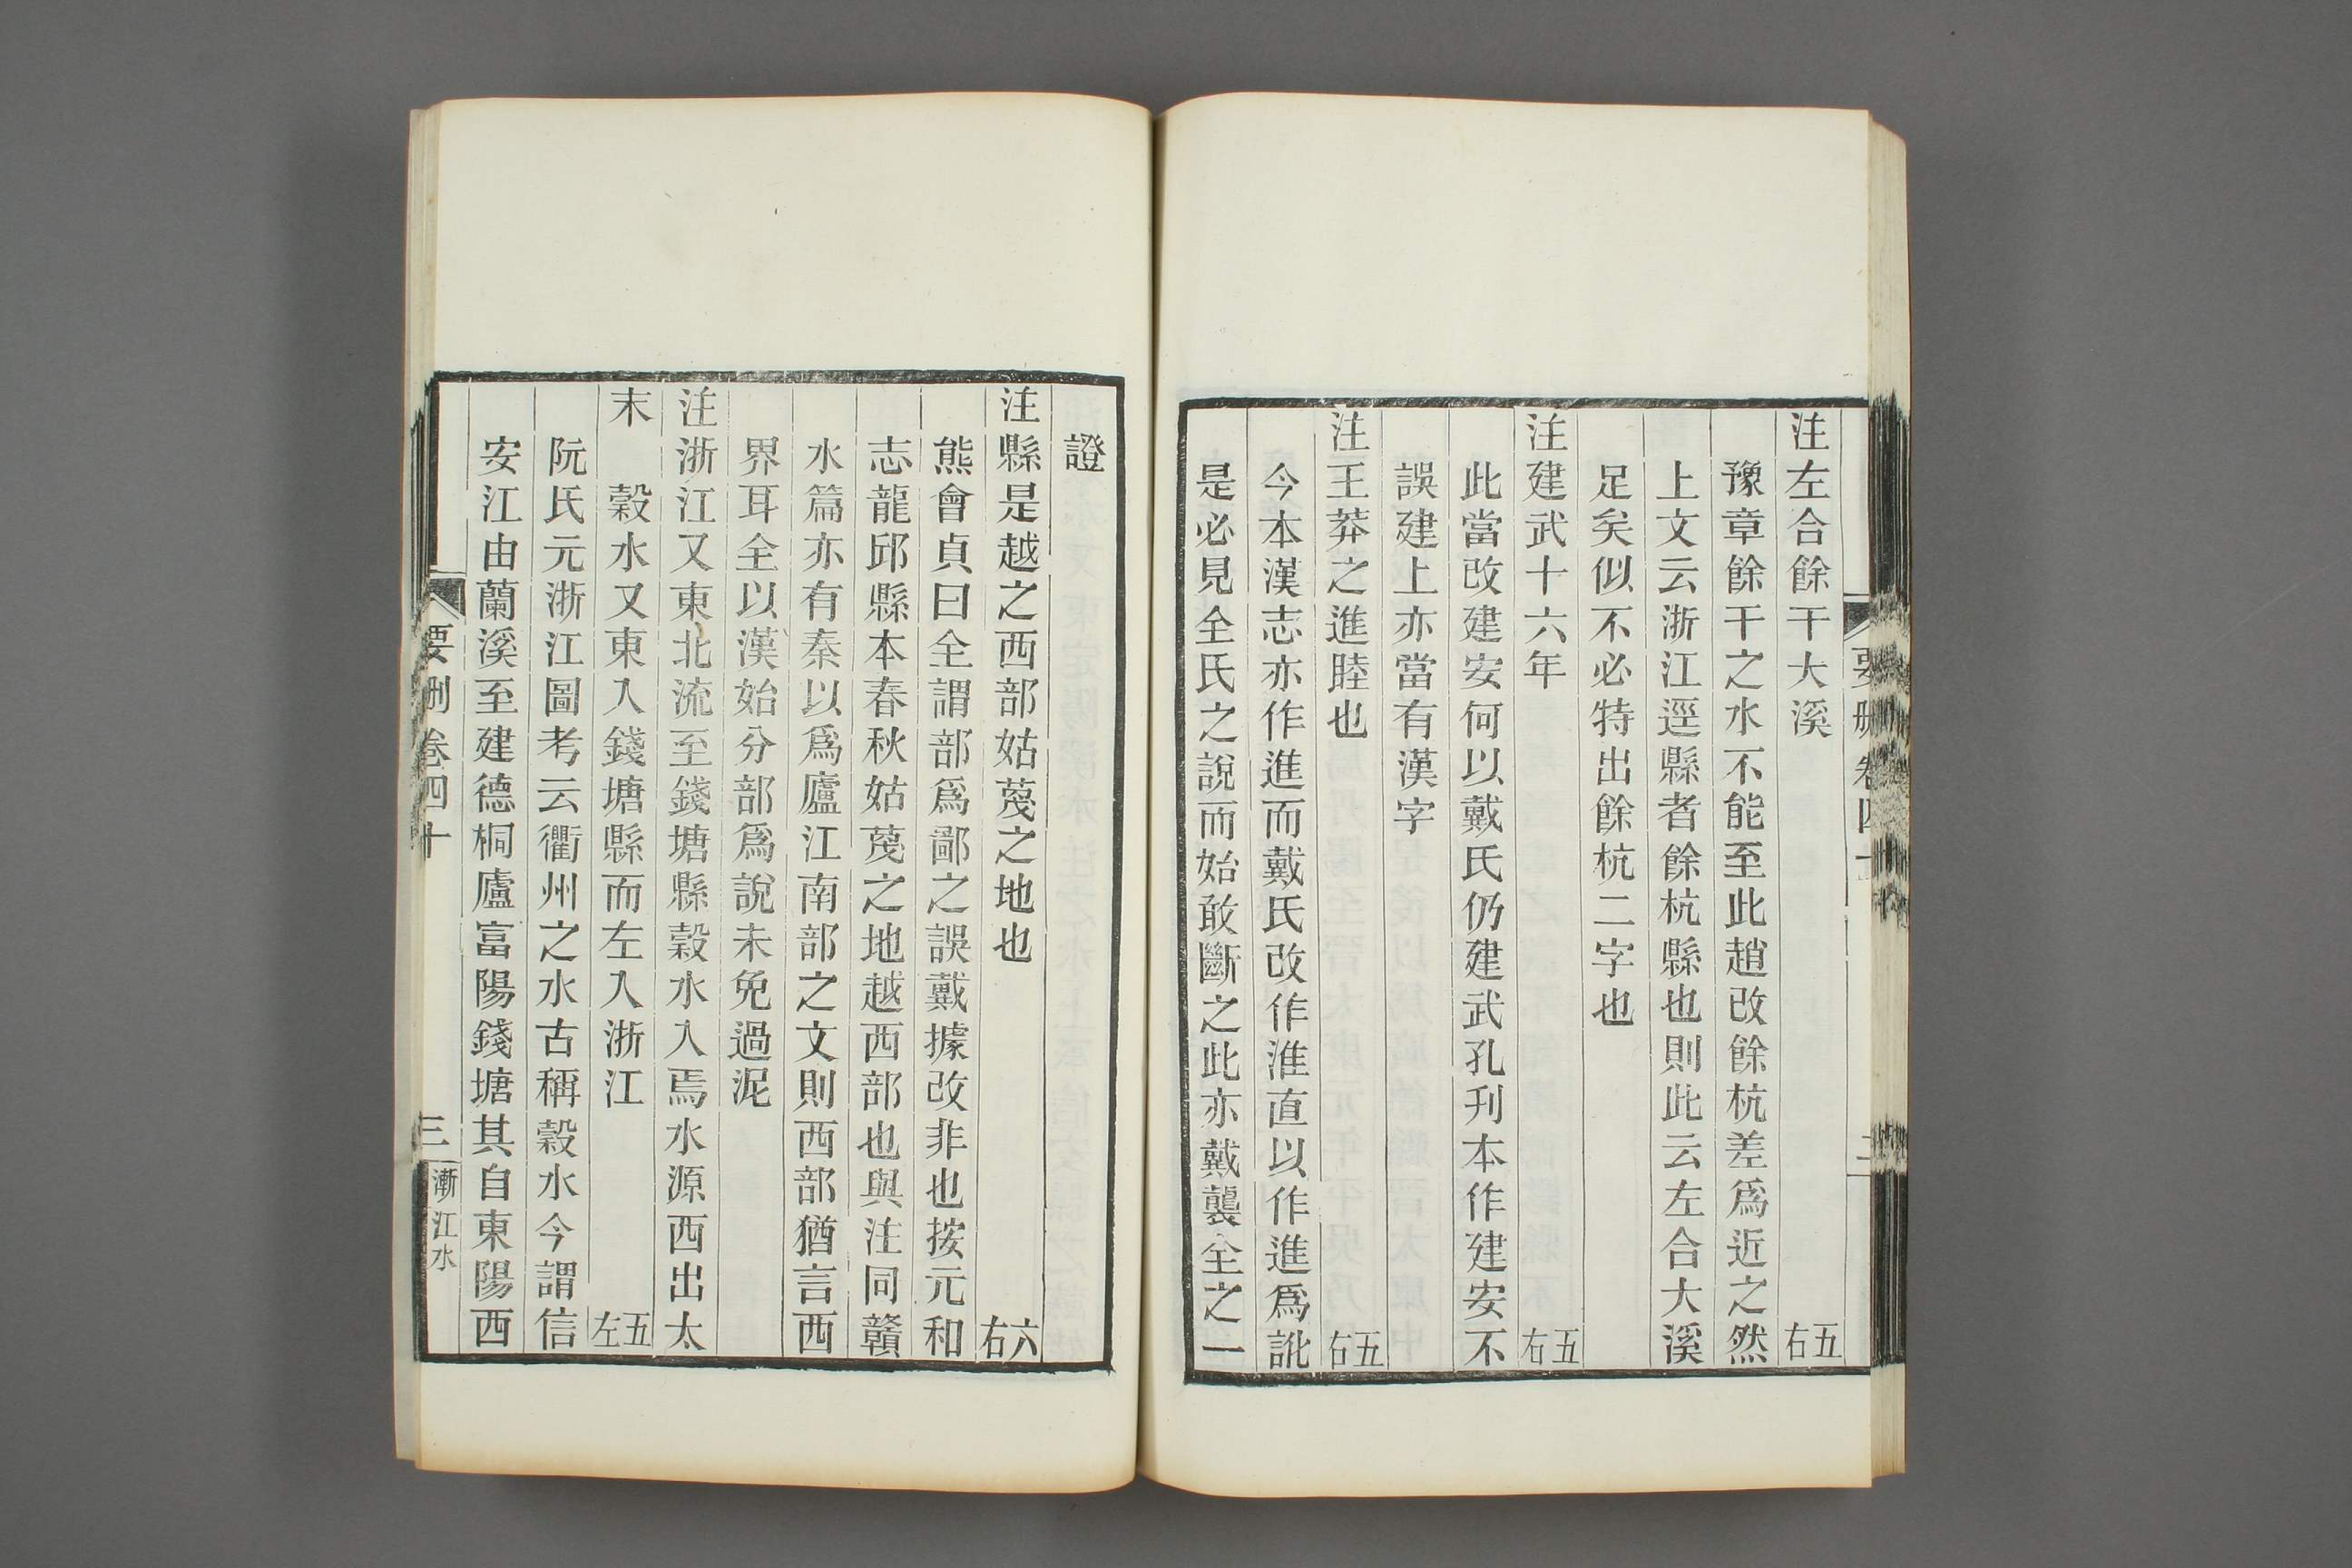 注左合餘干大溪 五右
豫章餘干之水不能至此趙改餘杭差爲近之然
上文云浙江逕縣者餘杭縣也則此云左合大溪
足矣似不必特出餘杭二字也
注建武十六年 五右
此當改建安何以戴氏仍建武孔刋本作建安不
誤建上亦當有漢字
注王莽之進睦也 五右
今本漢志亦作進而戴氏改作淮直以作進爲訛
是必見全氏之說而始敢斷之此亦戴襲全之一
證
注縣是越之西部姑蔑之地也 六右
熊會貞曰全謂部爲鄙之誤戴據改非也按元和
志龍邱縣本春秋姑蔑之地越西部也與注同贛
水篇亦有秦以爲廬江南部之文則西部猶言西
界耳全以漢始分部爲說未免過泥
注浙江又東北流至錢塘縣穀水入焉水源西出太
末 穀水又東入錢塘縣而左入浙江 五左
阮氏元浙江圖考云衢州之水古稱穀水今謂信
安江由蘭溪至建德桐廬富陽錢塘其自東陽西
要刪卷四十 三 漸江水